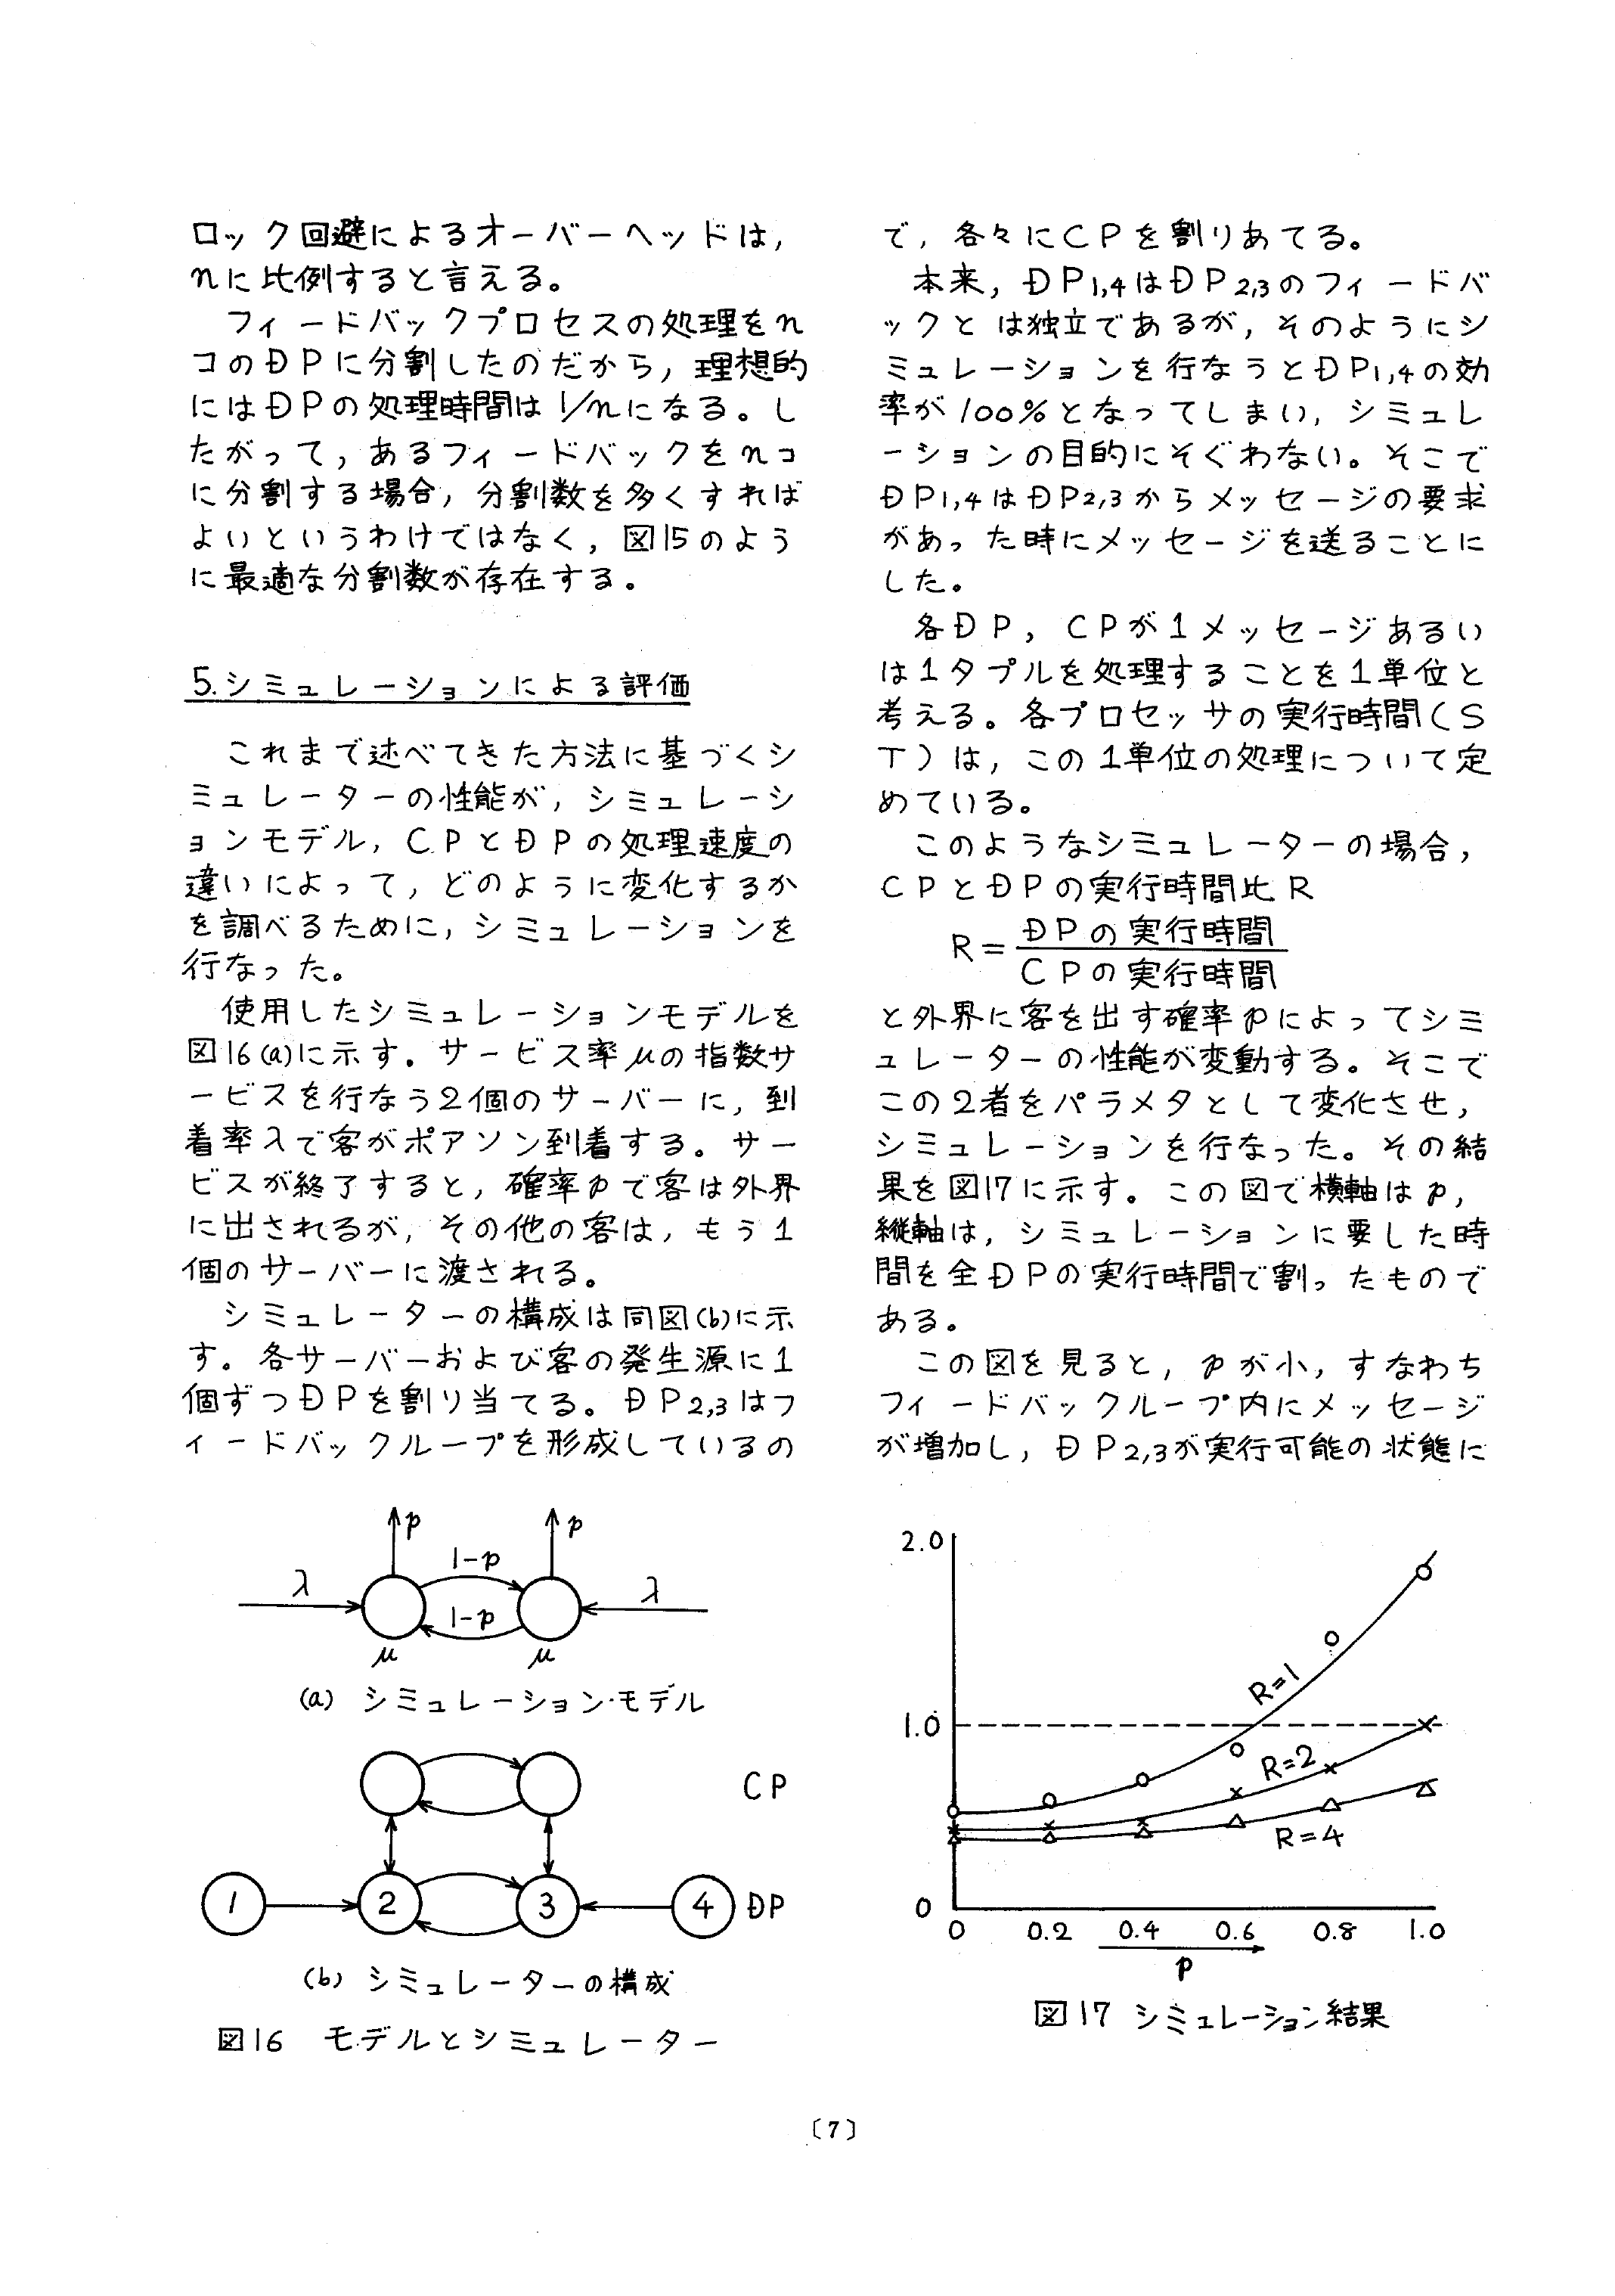 ロック回避によるオーバーヘッドは,
nに比例すると言える。
フィードバックプロセスの処理をn
コのĐPに分割したのだから,理想的
にはĐPの処理時間は1/nになる。し
たがって,あるフィードバックをnコ
に分割する場合,分割数を多くすれば
よいというわけではなく,図15のよう
に最適な分割数が存在する。
5.シミュレーションによる評価
これまで述べてきた方法に基づくシ
ミュレーターの性能が,シミュレーシ
ョンモデル,CPとĐPの処理速度の
違いによって,どのように変化するか
を調べるために,シミュレーションを
行なった。
使用したシミュレーションモデルを
図16(a)に示す。サービス率μの指数サ
ービスを行なう2個のサーバーに,到
着率λで客がポアソン到着する。サー
ビスが終了すると,確率pで客は外界
に出されるが,その他の客は,もう1
個のサーバーに渡される。
シミュレーターの構成は同図(b)に示
す。各サーバーおよび客の発生源に1
個ずつĐPを割り当てる。ĐP2,3はフ
ィードバックループを形成しているの
p p
1-p
λ λ
1-p
μ μ
(a) シミュレーション・モデル
CP
1 2 3 4 ĐP
(b) シミュレーターの構成
図16 モデルとシミュレーター
で,各々にCPを割りあてる。
本来,ĐP1,4はĐP2,3のフィードバ
ックとは独立であるが,そのようにシ
ミュレーションを行なうとĐP1,4の効
率が100%となってしまい,シミュレ
ーションの目的にそぐわない。そこで
ĐP1,4はĐP2,3からメッセージの要求
があった時にメッセージを送ることに
した。
各ĐP,CPが1メッセージあるい
は1タプルを処理することを1単位と
考える。各プロセッサの実行時間(S
T)は,この1単位の処理について定
めている。
このようなシミュレーターの場合,
CPとĐPの実行時間比R
R= ĐPの実行時間
CPの実行時間
と外界に客を出す確率pによってシミ
ュレーターの性能が変動する。そこで
この2者をパラメタとして変化させ,
シミュレーションを行なった。その結
果を図17に示す。この図で横軸はp,
縦軸は,シミュレーションに要した時
間を全ĐPの実行時間で割ったもので
ある。
この図を見ると,pが小,すなわち
フィードバックループ内にメッセージ
が増加し,ĐP2,3が実行可能の状態に
2.0
R=1
1.0
R=2
R=4
0
0 0.2 0.4 0.6 0.8 1.0
p
図17 シミュレーション結果
〔7〕